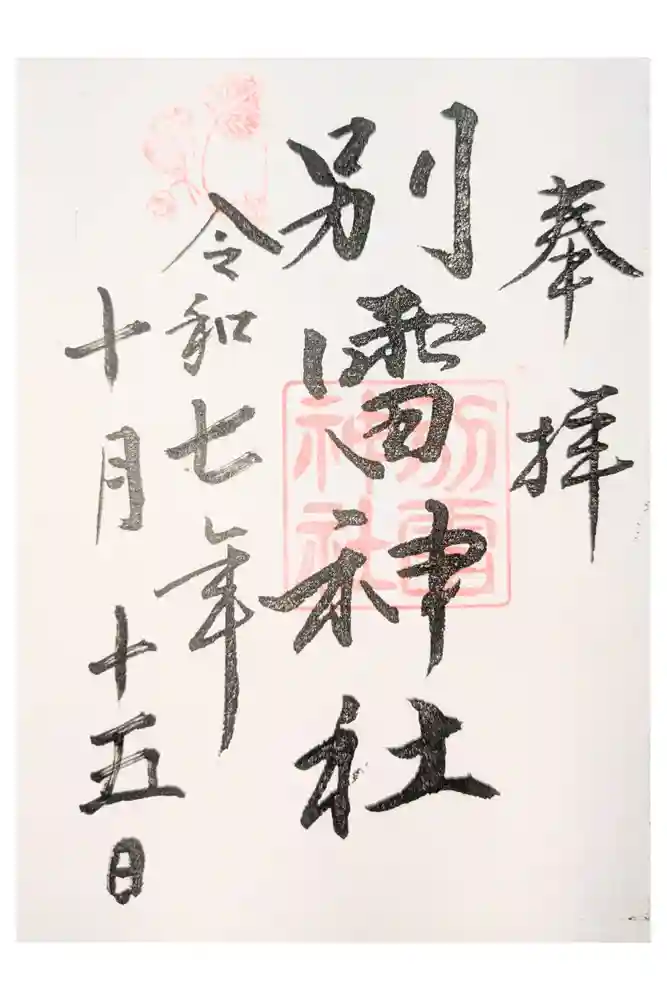 奉拝
別雷神社
別雷
神社
令和七年
十月十五日